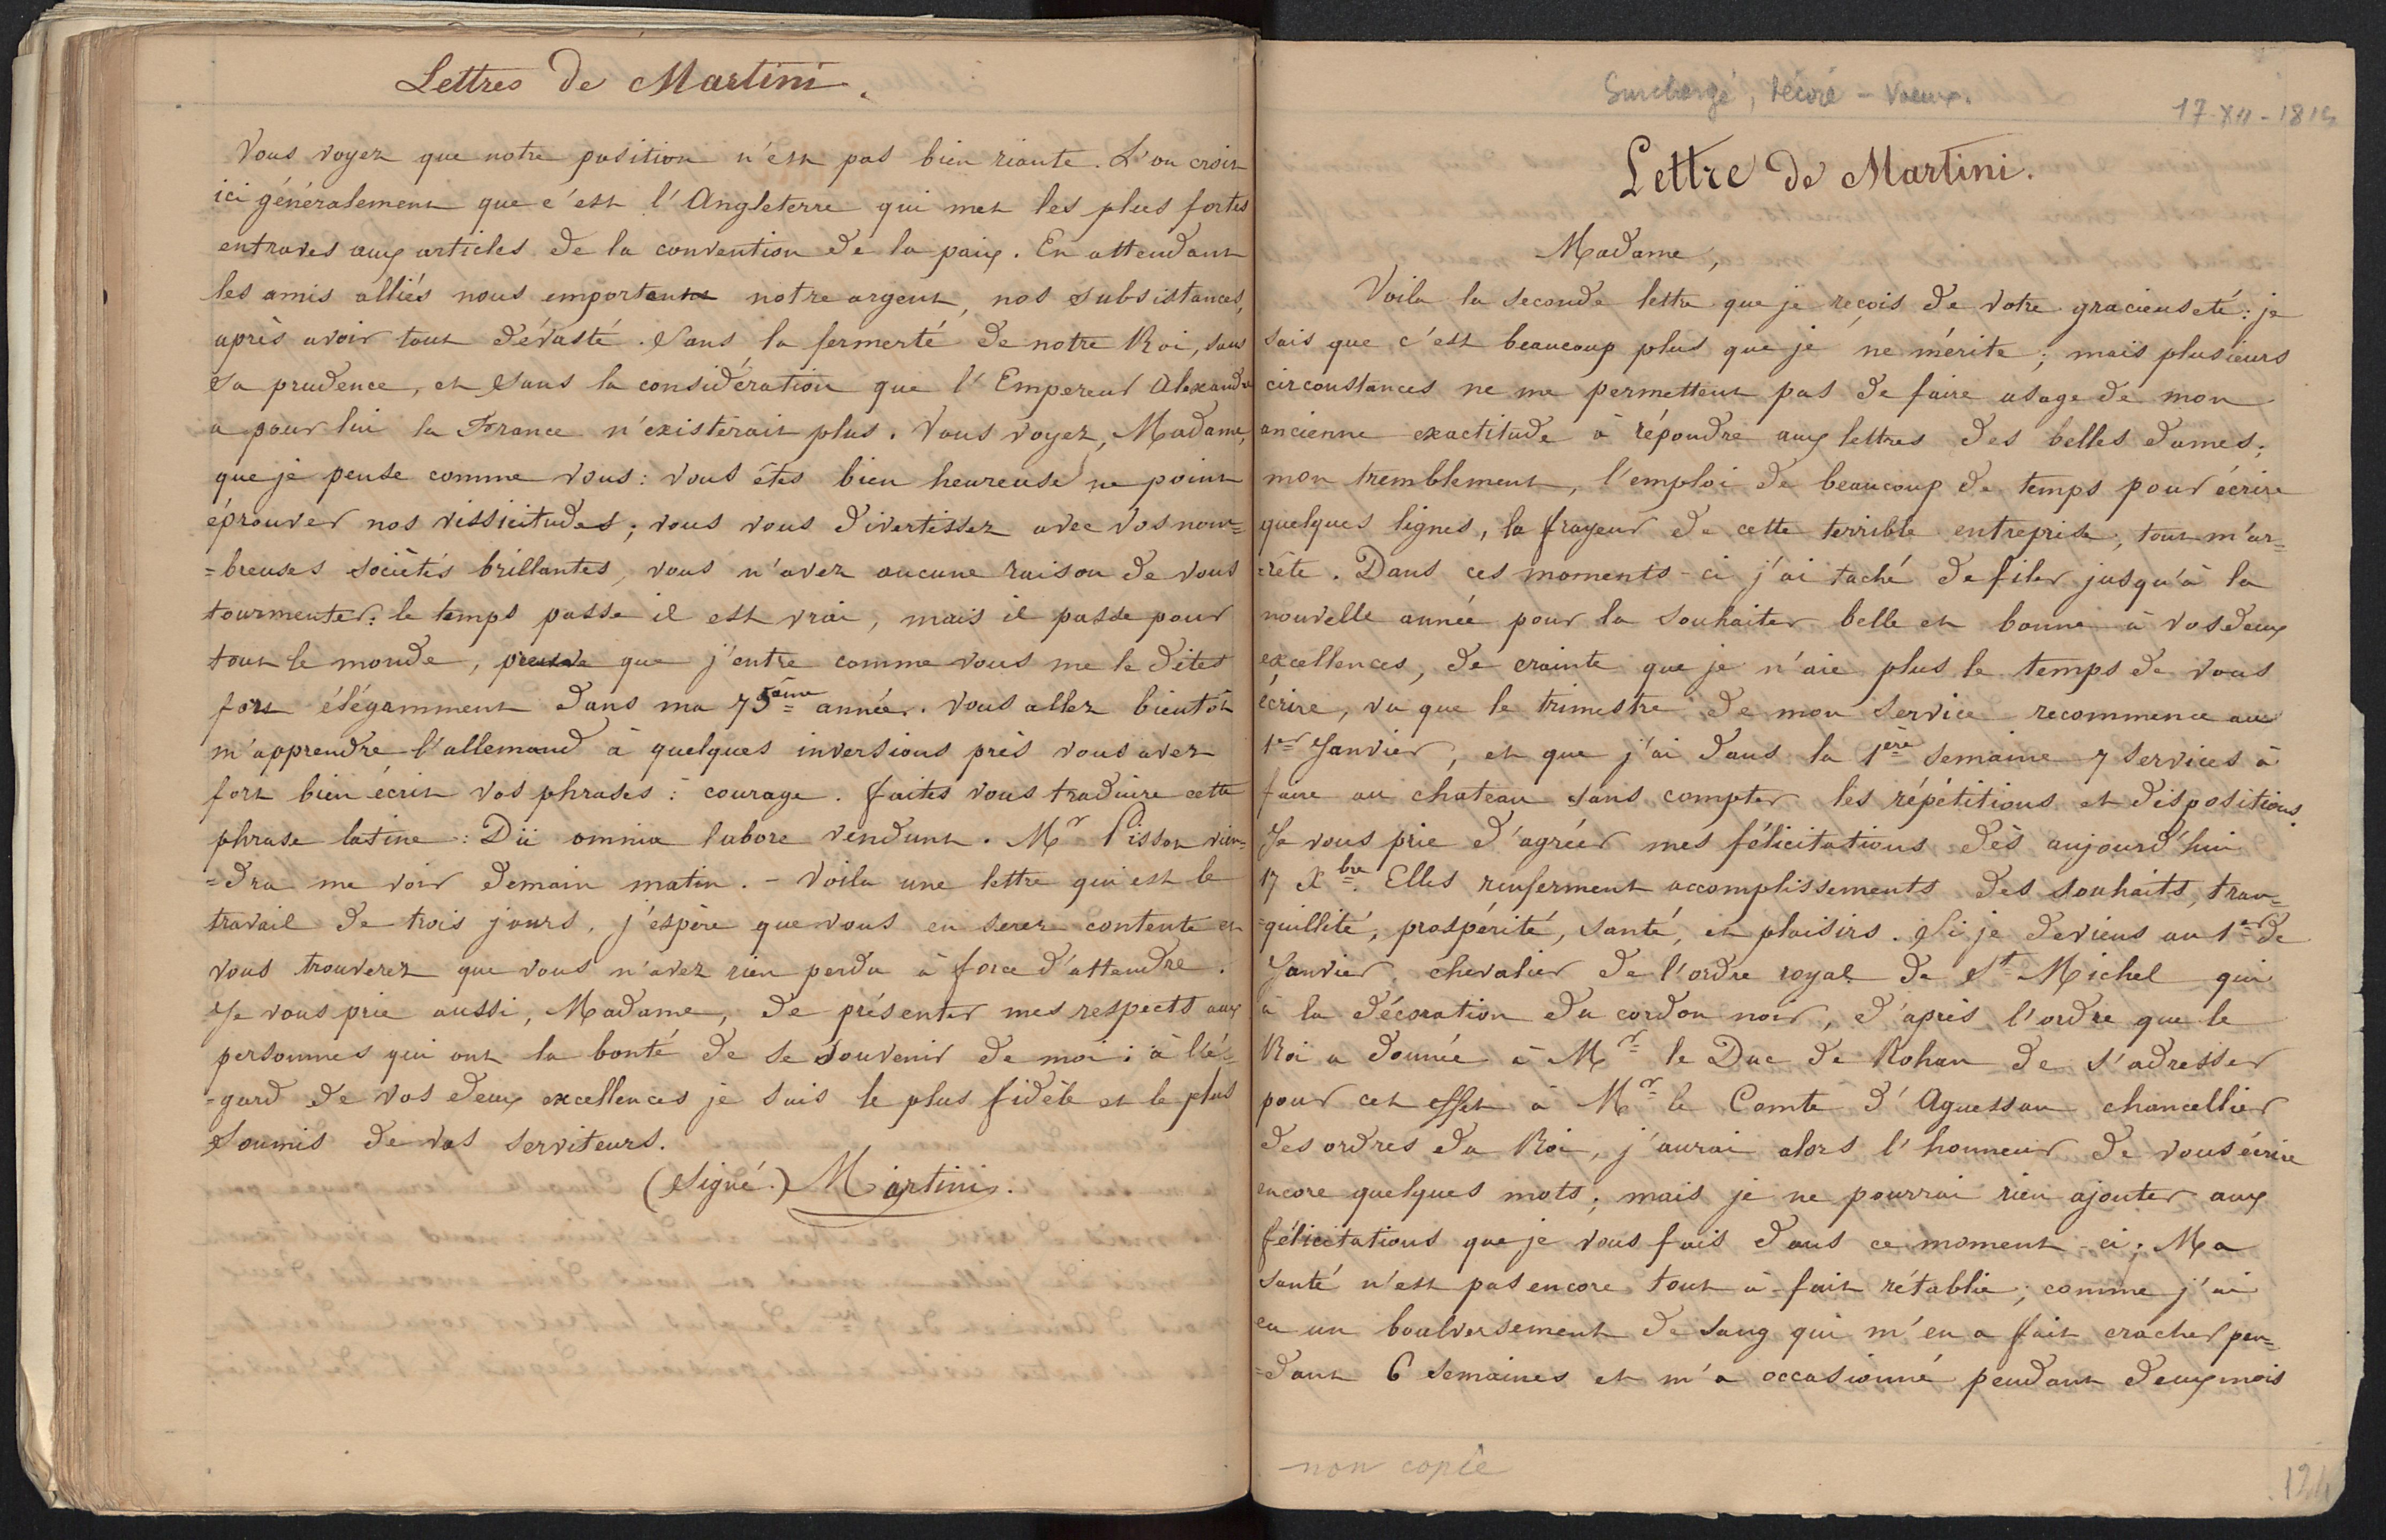 Lettres de Martini.
Vous voyez que notre position n'est pas bien riante. L'on croit
ici généralement que c'est l'Angleterre qui met les plus fortes
entraves aux articles de la convention de la paix. En attendant
les amis alliés nous emportent notre argent, nos subsistances,
après avoir tout dévasté. Sans la fermerté de notre Roi, sans
sa prudence, et sans la considération que l'Empereur Alexandre
a pour lui la France n'existerait plus. Vous voyez, Madame,
que je pense comme vous: vous êtes bien heureuse ne point
éprouver nos vissicitudes; vous vous divertissez avec vos nom=
=breuses sociétés brillantes, vous n'avez aucune raison de vous
tourmenter: le temps passe il est vrai, mais il passe pour
tout le monde, preuve que j'entre comme vous me le dites
fort élégamment dans ma 75ème année. Vous allez bientôt
m'apprendre l'allemand à quelques inversions près vous avez
fort bien écrit vos phrases: courage. faites vous traduire cette
phrase latine: Dii omnia labore vendunt. Mr Pisson vien=
=dra me voir demain matin. - Voila une lettre qui est le
travail de trois jours, j'espère que vous en serez contente et
vous trouverez que vous n'avez rien perdu à force d'attendre.
Je vous prie aussi, Madame, de présenter mes respects aux
personnes qui ont la bonté de se souvenir de moi; à l'é=
=gard de vos deux excellences je suis le plus fidèle et le plus
soumis de vos serviteurs.
(Signé.) Martini.
Surchargé, décoré - Voeux.
17-XII-1815
Lettre de Martini.
Madame,
Voila la seconde lettre que je reçois de votre gracieuseté: je
sais que c'est beaucoup plus que je ne mérite; mais plusieurs
circonstances ne me permettent pas de faire usage de mon
ancienne exactitude à répondre aux lettres des belles dames;
mon tremblement, l'emploi de beaucoup de temps pour écrire
quelques lignes, la frayeur de cette terrible entreprise, tout m'ar=
=rête. Dans ces moments-ci j'ai taché de filer jusqu'à la
nouvelle année pour la souhaiter belle et bonne à vos deux
excellences, de crainte que je n'aie plus le temps de vous
écrire, vu que le trimestre de mon service recommence au
1er Janvier, et que j'ai dans la 1ère semaine 7 services à
faire au chateau sans compter les répétitions et dispositions.
Je vous prie d'agréer mes félicitations dès aujourd'hui
17 Xbre. Elles renferment accomplissements des souhaits, tran=
=quillité, prospérité, santé, et plaisirs. Si je deviens au 1er de
Janvier chevalier de l'ordre royal de St Michel qui
à la décoration du cordon noir, d'après l'ordre que le
Roi a donnée à Mr le Duc de Rohan de s'adresser
pour cet effet à Mr le Comte d'Aguessau chancellier
des ordres du Roi, j'aurai alors l'honneur de vous écrire
encore quelques mots; mais je ne pourrai rien ajouter aux
félicitations que je vous fais dans ce moment-ci; Ma
santé n'est pas encore tout à-fait rétablie; comme j'ai
eu un boulversement de sang qui m'en a fait cracher pen=
=dant 6 semaines et m'a occasionné pendant deux mois
non copié
124